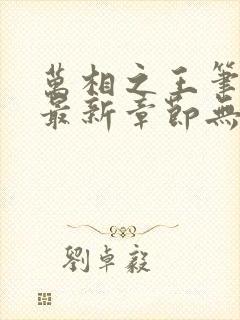 萬相之王筆
最新章節無
劉卓毅